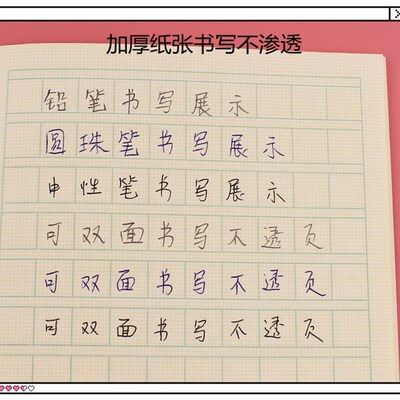 加厚纸张书写不渗透
铅笔书写展示
圆珠笔书写展示
中性笔书写展示
可双面书写不透页
可双面书写不透页
可双面书写不透页